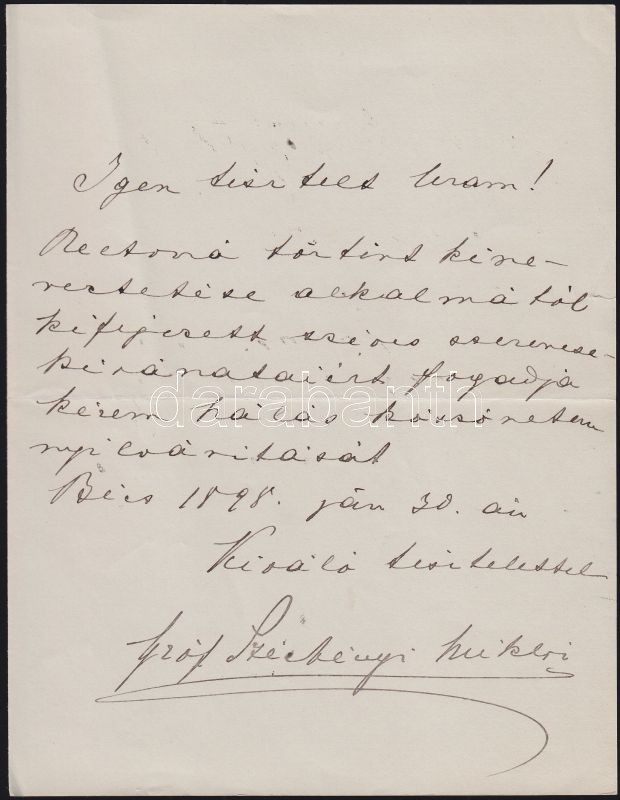 Igen tisztelt Uram!
Rectorrá történt kine-
veztetése alkalmától
kifejezett szíves szerencse-
kívánataiért fogadja
darabanth
kérem hálás köszönetem
nyilvánítását
Bécs 1898. ján 30. án
Kiváló tisztelettel
gróf Széchényi Miklós